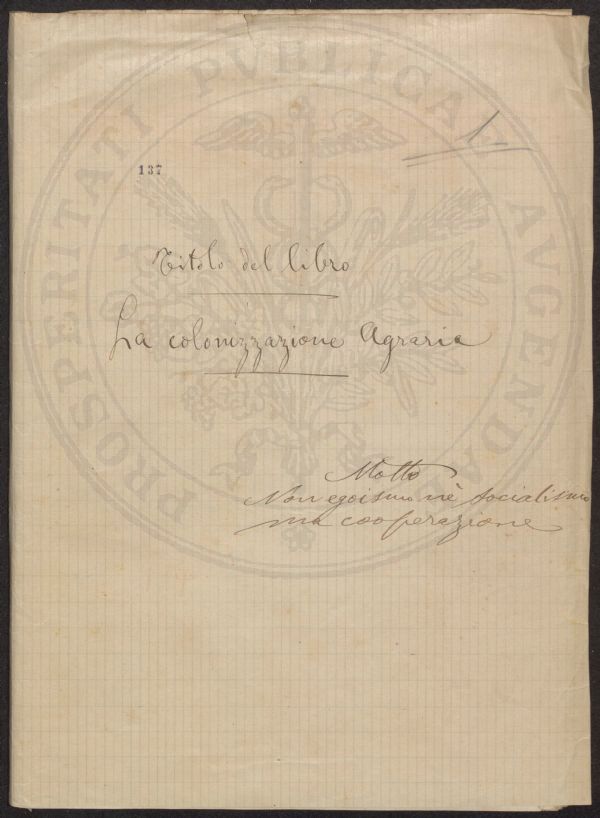 PROSPERITATI PVBLICAE AVGENDAE
1
137
Titolo del libro
La colonizzazione Agraria
Motto
Non egoismo nè socialismo
ma cooperazione